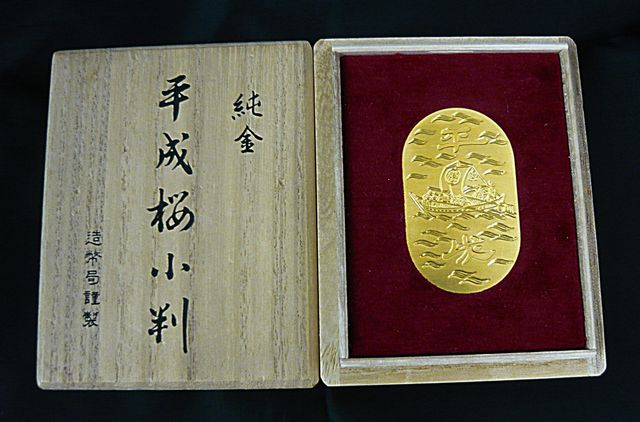 純金
平成桜小判
造幣局謹製
平成